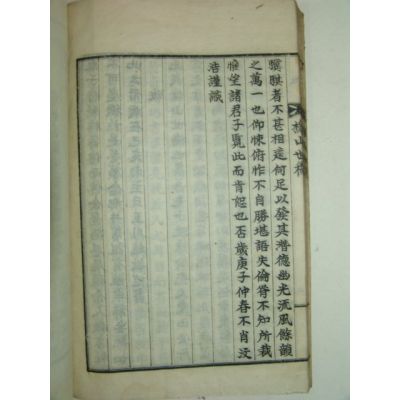 驥騏者不甚相遠何足以發其潛德幽光流風餘韻
之萬一也仰悚俯怍不自勝堪語失倫脊不知所裁
惟望諸君子覽此而肯恕也否歲庚子仲春不肖汶
君謹識
山世稿